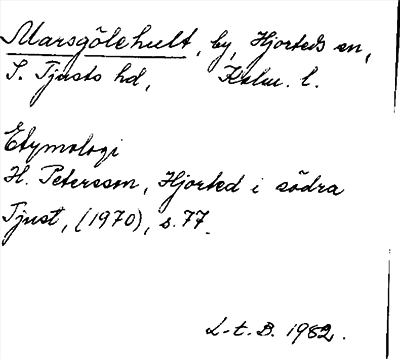 Marsgölehult, by, Hjorteds sn,
S. Tjusts hd, Kalm. l.
Etymologi
H. Petersson, Hjorted i södra
Tjust, (1970), s. 77.
L-t. B. 1982.